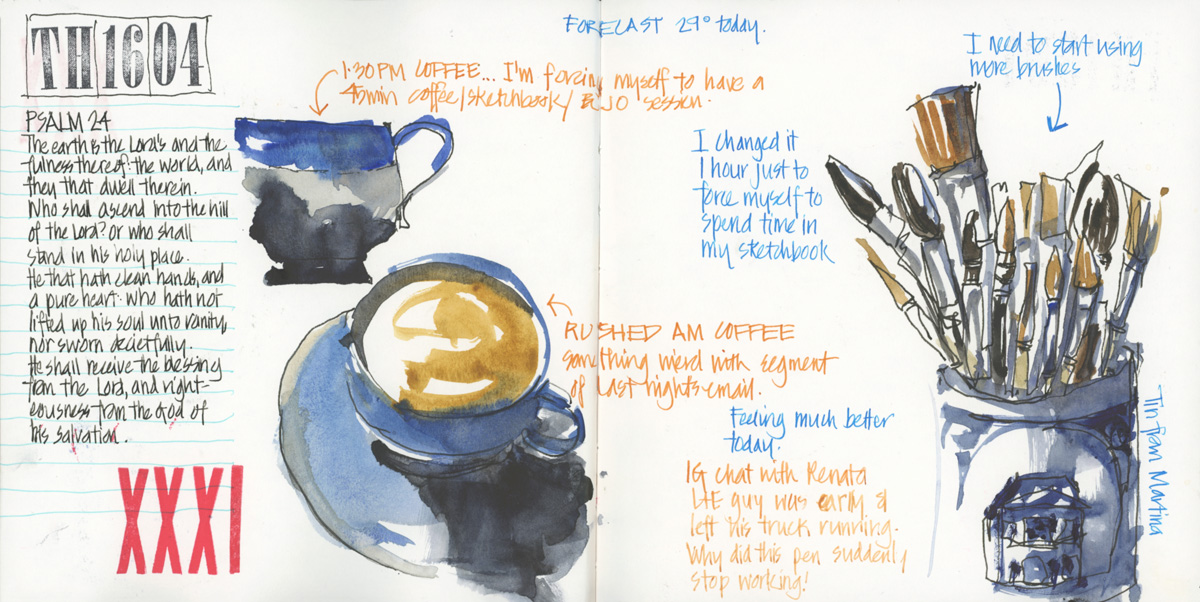 TH 16 04
PSALM 24
The earth is the Lord's and the
fulness thereof: the world, and
they that dwell therein.
Who shall ascend into the hill
of the Lord? or who shall
stand in his holy place.
He that hath clean hands, and
a pure heart. Who hath not
lifted up his soul unto vanity,
nor sworn decietfully.
He shall receive the blessing
from the Lord, and right-
eousness from the God of
his salvation.
XXXI
FORECAST 29° today.
1:30PM COFFEE... I'm forcing myself to have a
45min coffee/sketchbook/ SESSION.
RUSHED AM COFFEE
something wierd with segment
of last nights email.
I changed it
1 hour just to
force myself to
spend time in
my sketchbook
Feeling much better
today.
IG chat with Renata
guy was early &
left his truck running.
Why did this pen suddenly
stop working!
I need to start using
more brushes
Tin from Martina